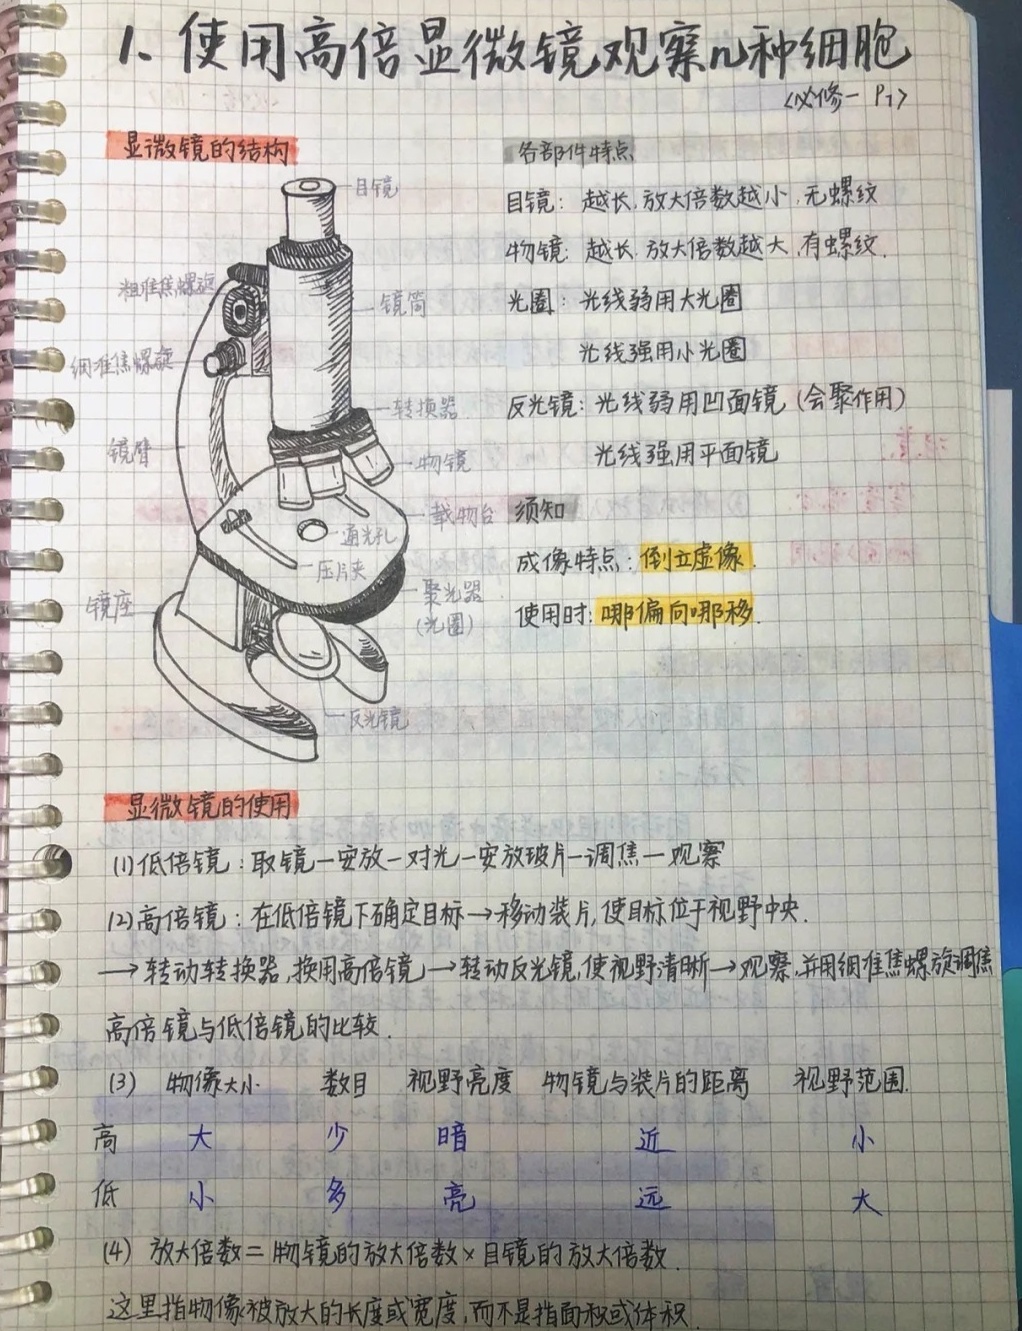 1、使用高倍显微镜观察几种细胞
<必修一 P7>
显微镜的结构
目镜
粗准焦螺旋
镜筒
细准焦螺旋
转换器
镜臂
物镜
载物台
通光孔
压片夹
聚光器
(光圈)
镜座
反光镜
各部件特点
目镜：越长，放大倍数越小，无螺纹
物镜：越长，放大倍数越大，有螺纹.
光圈：光线弱用大光圈
光线强用小光圈
反光镜：光线弱用凹面镜（会聚作用）
光线强用平面镜
须知
成像特点：倒立虚像.
使用时：哪偏向哪移.
显微镜的使用
(1)低倍镜：取镜—安放—对光—安放玻片—调焦—观察
(2)高倍镜：在低倍镜下确定目标→移动装片,使目标位于视野中央.
→转动转换器,换用高倍镜→转动反光镜,使视野清晰→观察,并用细准焦螺旋调焦
高倍镜与低倍镜的比较.
(3) 物像大小 数目 视野亮度 物镜与装片的距离 视野范围.
高 大 少 暗 近 小
低 小 多 亮 远 大
(4) 放大倍数＝物镜的放大倍数×目镜的放大倍数.
这里指物像被放大的长度或宽度,而不是指面积或体积.